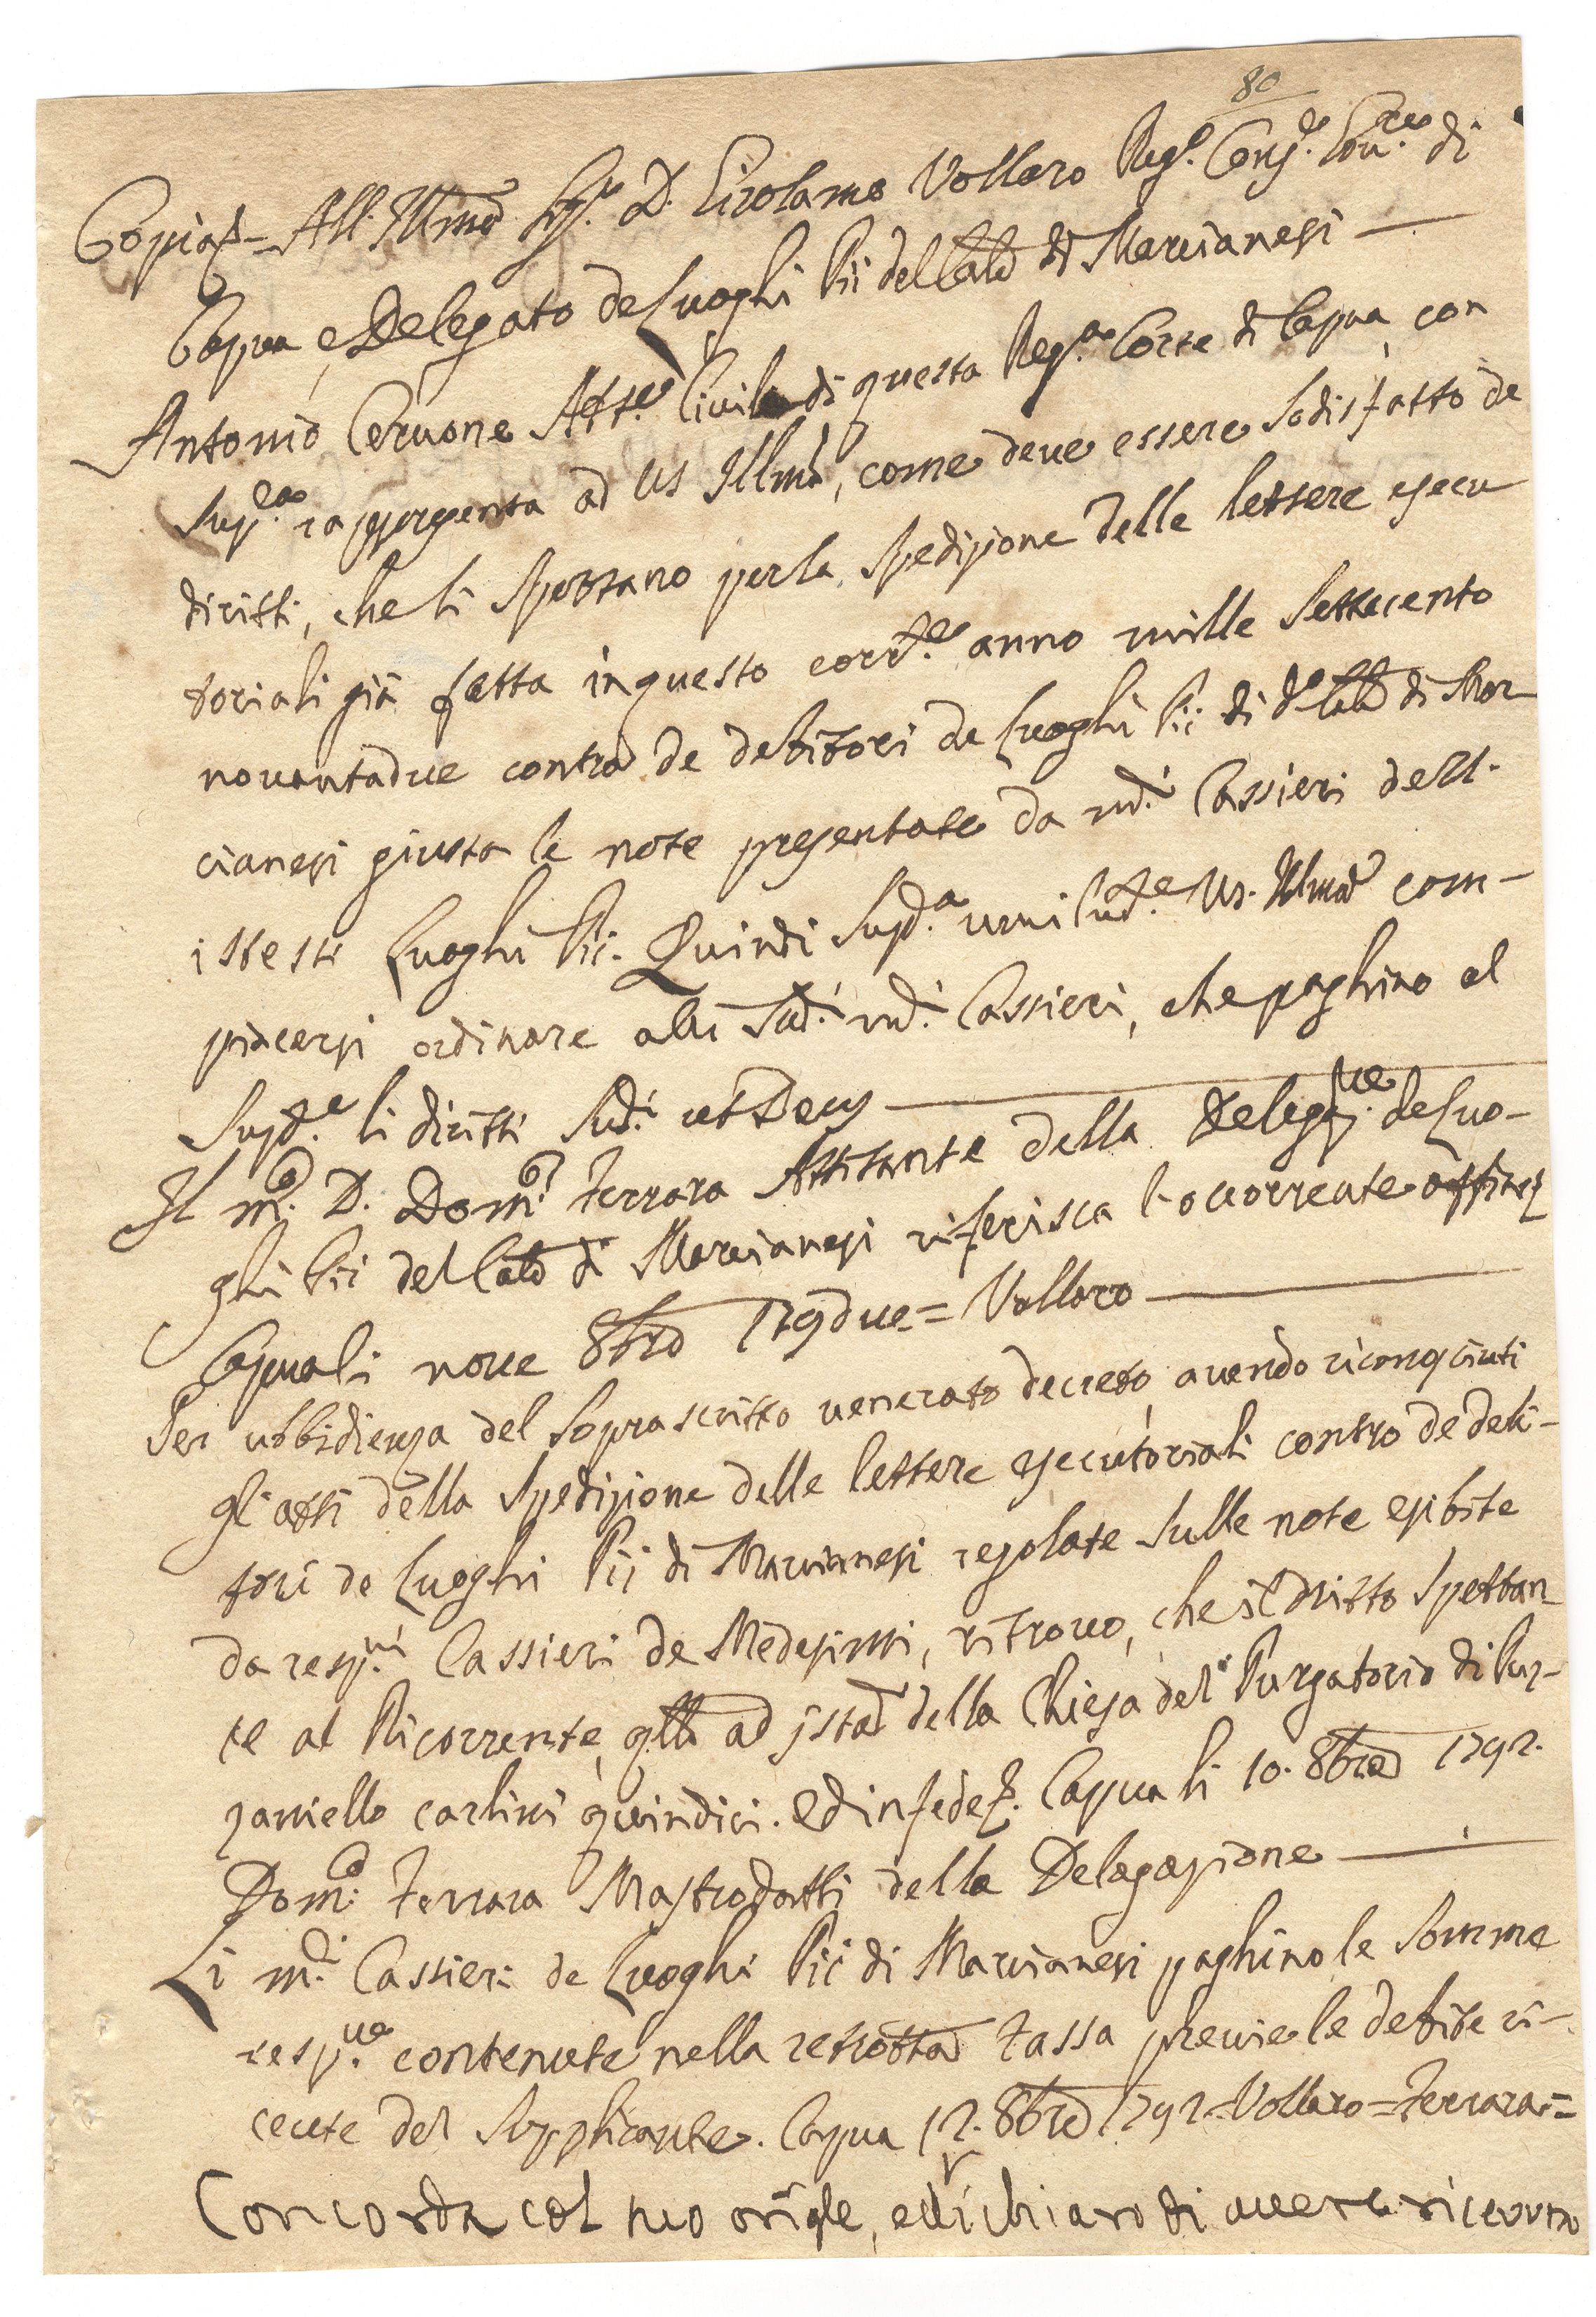 80
Copia = All' Ill.mo Sig.r D. Girolamo Vollaro Reg.o Cons.e Gov.re di
Capua, e Delegato de Luoghi Pii del Cale di Marcianesi —
Antonio Cervone Att.e Civile di questa Reg.a Corte di Capua, con
sup.ca rappresenta ad VS Ill.ma, come deve essere sodisfatto de
diritti, che li spettano per la spedizione delle lettere esecu
toriali già fatta in questo corr.te anno mille settecento
novantadue contro de debitori de Luoghi Pii di d.o Cale di Mar-
cianesi giusta le note presentate da m.ci Cassieri dell'
istessi Luoghi Pii. Quindi sup.ca umilm.e VS. Ill.ma com-
piacersi ordinare alli sud.i m.ci Cassieri, che paghino al
Sup.te li diritti sud.i ut Deus —
Il m.co D. Dom.co Ferrara Attitante della Delegaz.ne de Luo-
ghi Pii del Cale di Marcianesi riferisca l'occorrente
Capua li nove 8bre 179due = Vollaro —
Per ubbidienza del soprascritto venerato decreto, avendo riconosciuti
gli atti della spedizione delle lettere esecutoriali contro de debi-
tori de Luoghi Pii di Marcianesi regolate sulle note esibite
da resp.vi Cassieri de Medesimi, ritrovo, che il dritto spettan
te al Ricorrente, ad ista della Chiesa del Purgatorio di
zaniello carlini quindici. Ed in fede. Capua li 10. 8bre 1792.
Dom.co Ferrara Mastrodatti della Delagazione —
Li m.ci Cassieri de Luoghi Pii di Marcianesi paghino le somme
resp.ve contenute nella retrotta tassa previe le debite ri-
cevute del Supplicante. Capua 12. 8bre 1792. Vollaro = Ferrara =
Concorda col suo origle, e dichiaro di avere ricevuto